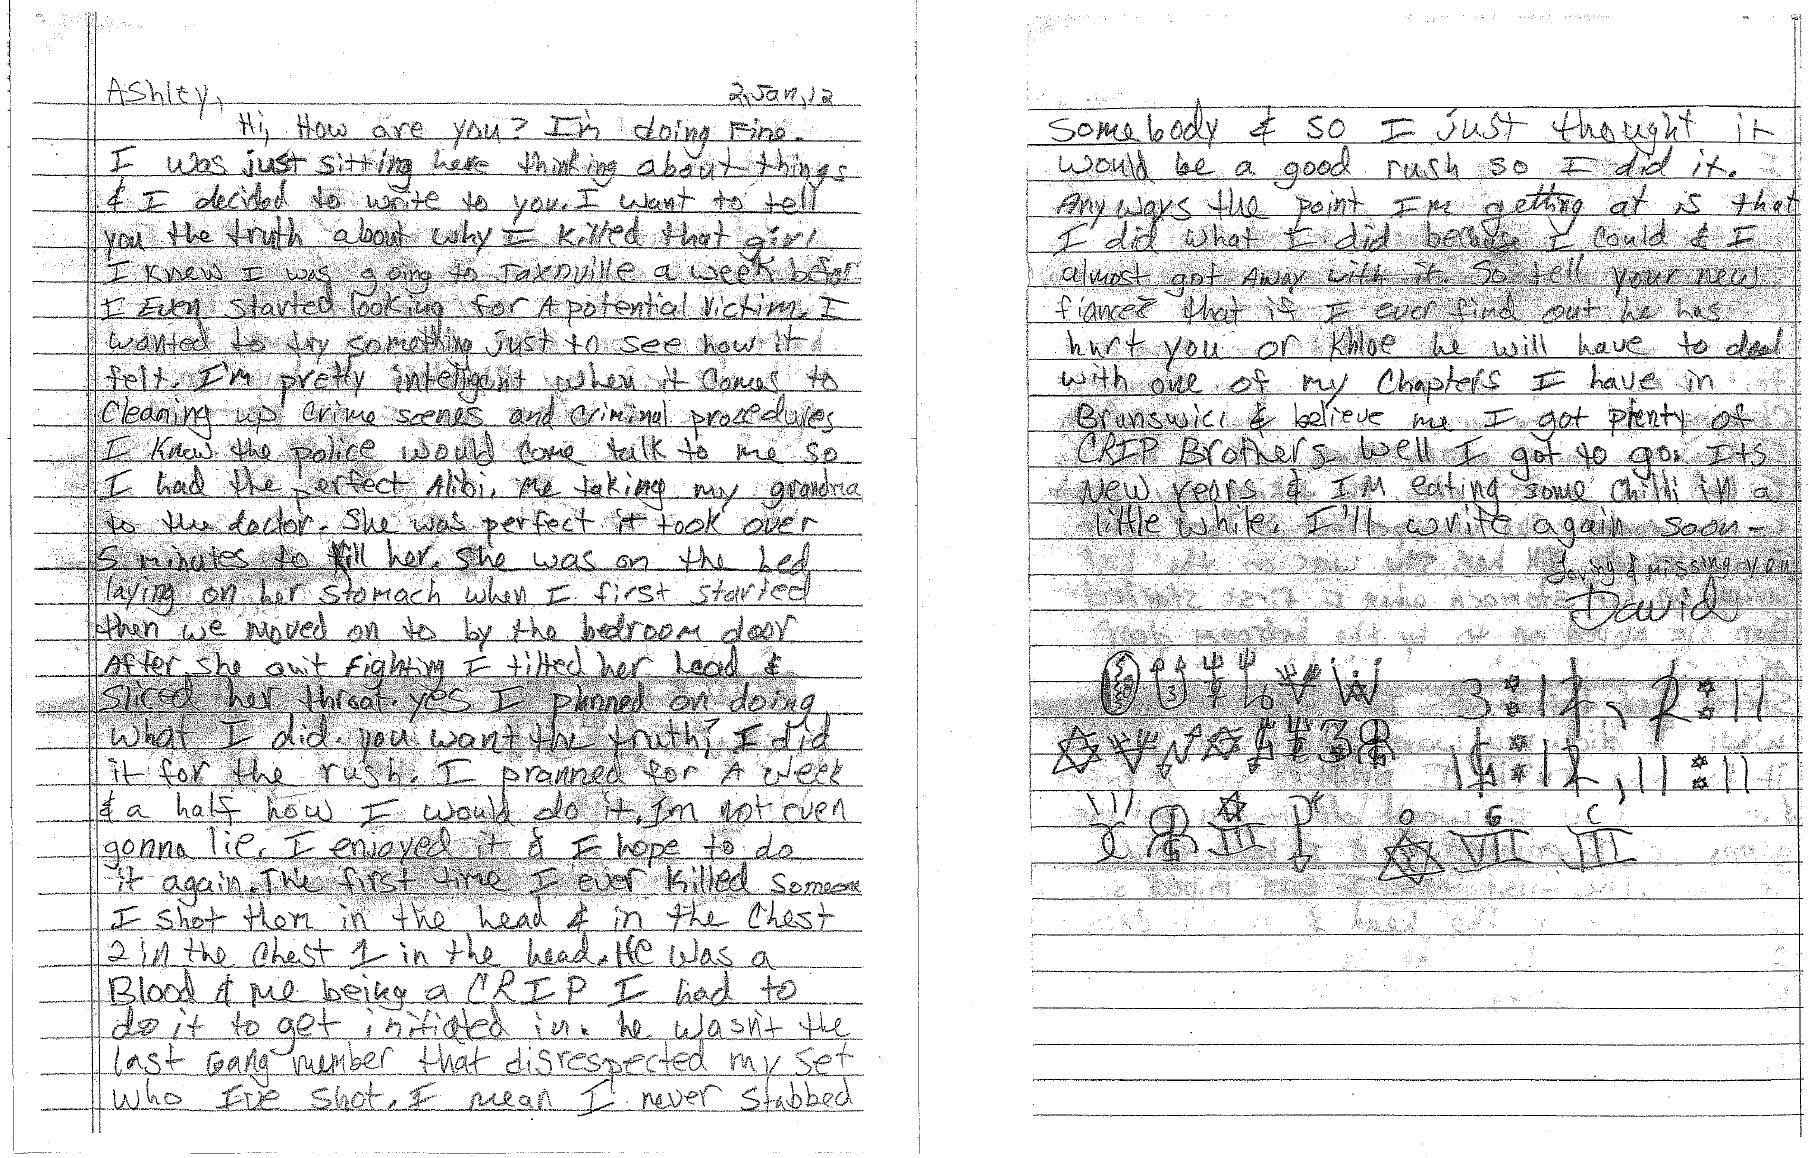 Ashley,
2,Jan,12
Hi, How are you? I'm doing Fine.
I was just sitting here thinking about things
& I decided to write to you. I want to tell
you the truth about why I killed that girl
I knew I was going to Jaxonville a week befor
I Even started looking for A potential victim. I
wanted to try something just to see how it
felt. I'm pretty inteligent when it comes to
Cleaning up Crime scenes and Criminal procedures
I knew the police would come talk to me so
I had the perfect Alibi, me taking my grandma
to the doctor. She was perfect it took over
5 minutes to kill her. She was on the bed
laying on her stomach when I first started
then we moved on to by the bedroom door
After she quit Fighting I tilted her head &
sliced her throat. yes I planned on doing
what I did. you want the truth? I did
it for the rush. I pranned for A week
& a half how I would do it. Im not even
gonna lie. I enjoyed it & I hope to do
it again. The first time I ever killed someone
I shot them in the head & in the Chest
2 in the Chest 1 in the head. He was a
Blood & me being a CRIP I had to
do it to get initiated in. he wasn't the
last Gang member that disrespected my set
who I've shot. I mean I never stabbed
Somebody & so I just thought it
would be a good rush so I did it.
Any ways the point I'm getting at is that
I did what I did because I could & I
almost got Away with it. So tell your new
fiance? that if I ever find out he has
hurt you or Khloe he will have to deal
with one of my Chapters I have in
Brunswick & believe me I got plenty of
CRIP Brothers well I got to go. Its
New years & I'm eating some Chilli in a
little while. I'll write again soon-
loving & missing you
David